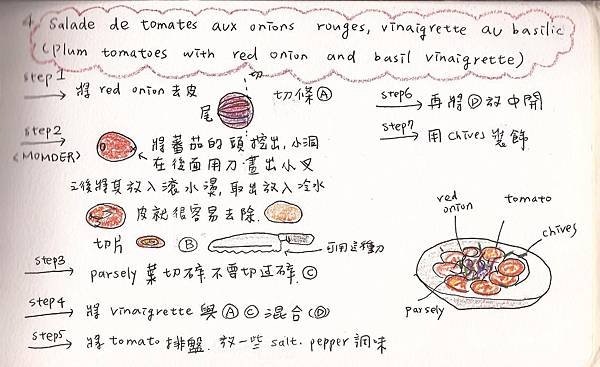 4 Salade de tomates aux onions rouges, vinaigrette au basilic
(plum tomatoes with red onion and basil vinaigrette)
step1
將 red onion 去皮
尾
切
切條Ⓐ
step2
<MOMDER>
將蕃茄的頭挖出小洞
在後面用刀畫出小叉
之後將其放入滾水燙,取出放入冷水
皮就很容易去除.
切片
Ⓑ
可用這種刀
step3
parsely 葉切碎.不要切過碎.Ⓒ
step4
將 vinaigrette 與ⒶⒸ混合(Ⓓ)
step5
將 tomato 排盤. 放一些 salt. pepper 調味
step6
再將Ⓓ放中間
step7
用 chives 裝飾
red onion
tomato
chives
parsely